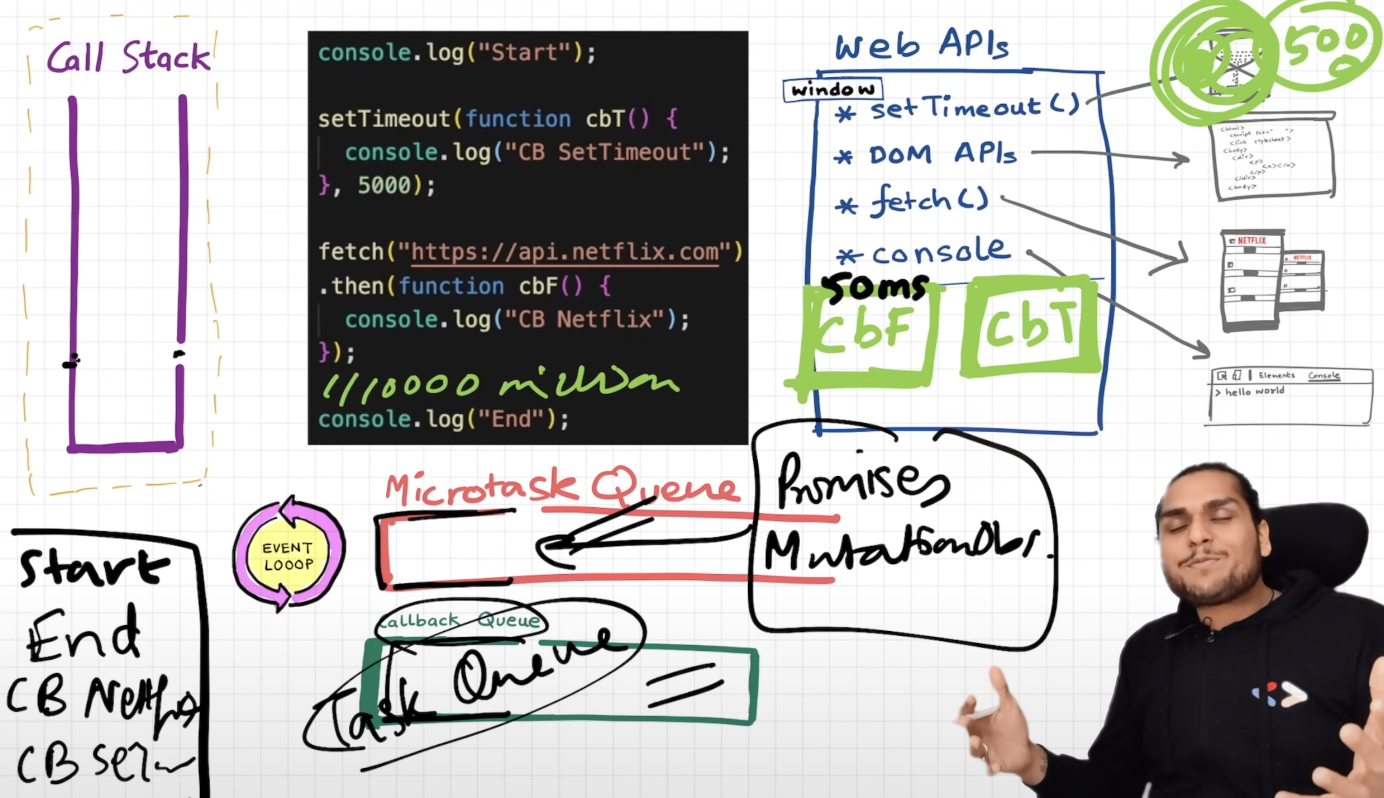 Call Stack
console.log("Start");
setTimeout(function cbT() {
console.log("CB SetTimeout");
}, 5000);
fetch("https://api.netflix.com")
.then(function cbF() {
console.log("CB Netflix");
});
million
console.log("End");
Web APIs
window
* setTimeout()
* DOM APIs
* fetch()
* console
50ms
cbF
cbT
5000
NETFLIX
NETFLIX
Elements Console
> hello world
Microtask Queue
Promises
MutationObs.
EVENT
LOOOP
Callback Queue
Task Queue
Start
End
CB Netflix
CB Set